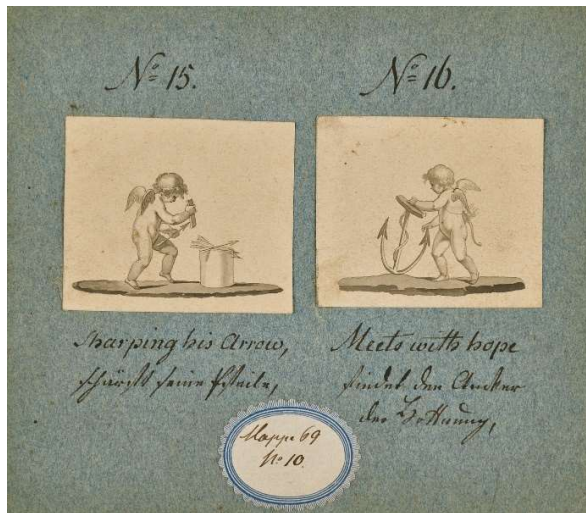 No 15.
No 16.
Sharping his Arrow,
schärft seine Pfeile,
Meets with hope
findet den Anker
der Hoffnung,
Mappe 69
No 10.